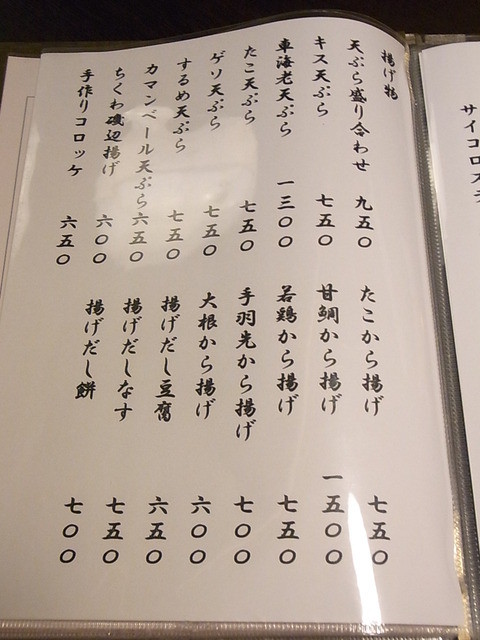 揚げ物
天ぷら盛り合わせ 九五〇
キス天ぷら 七五〇
車海老天ぷら 一三〇〇
たこ天ぷら 七五〇
ゲソ天ぷら 七五〇
するめ天ぷら 七五〇
カマンベール天ぷら 六五〇
ちくわ磯辺揚げ 六〇〇
手作りコロッケ 六五〇
たこから揚げ 七五〇
甘鯛から揚げ 一五〇〇
若鶏から揚げ 七五〇
手羽先から揚げ 七〇〇
大根から揚げ 六〇〇
揚げだし豆腐 六五〇
揚げだしなす 七五〇
揚げだし餅 七〇〇
サイコロス